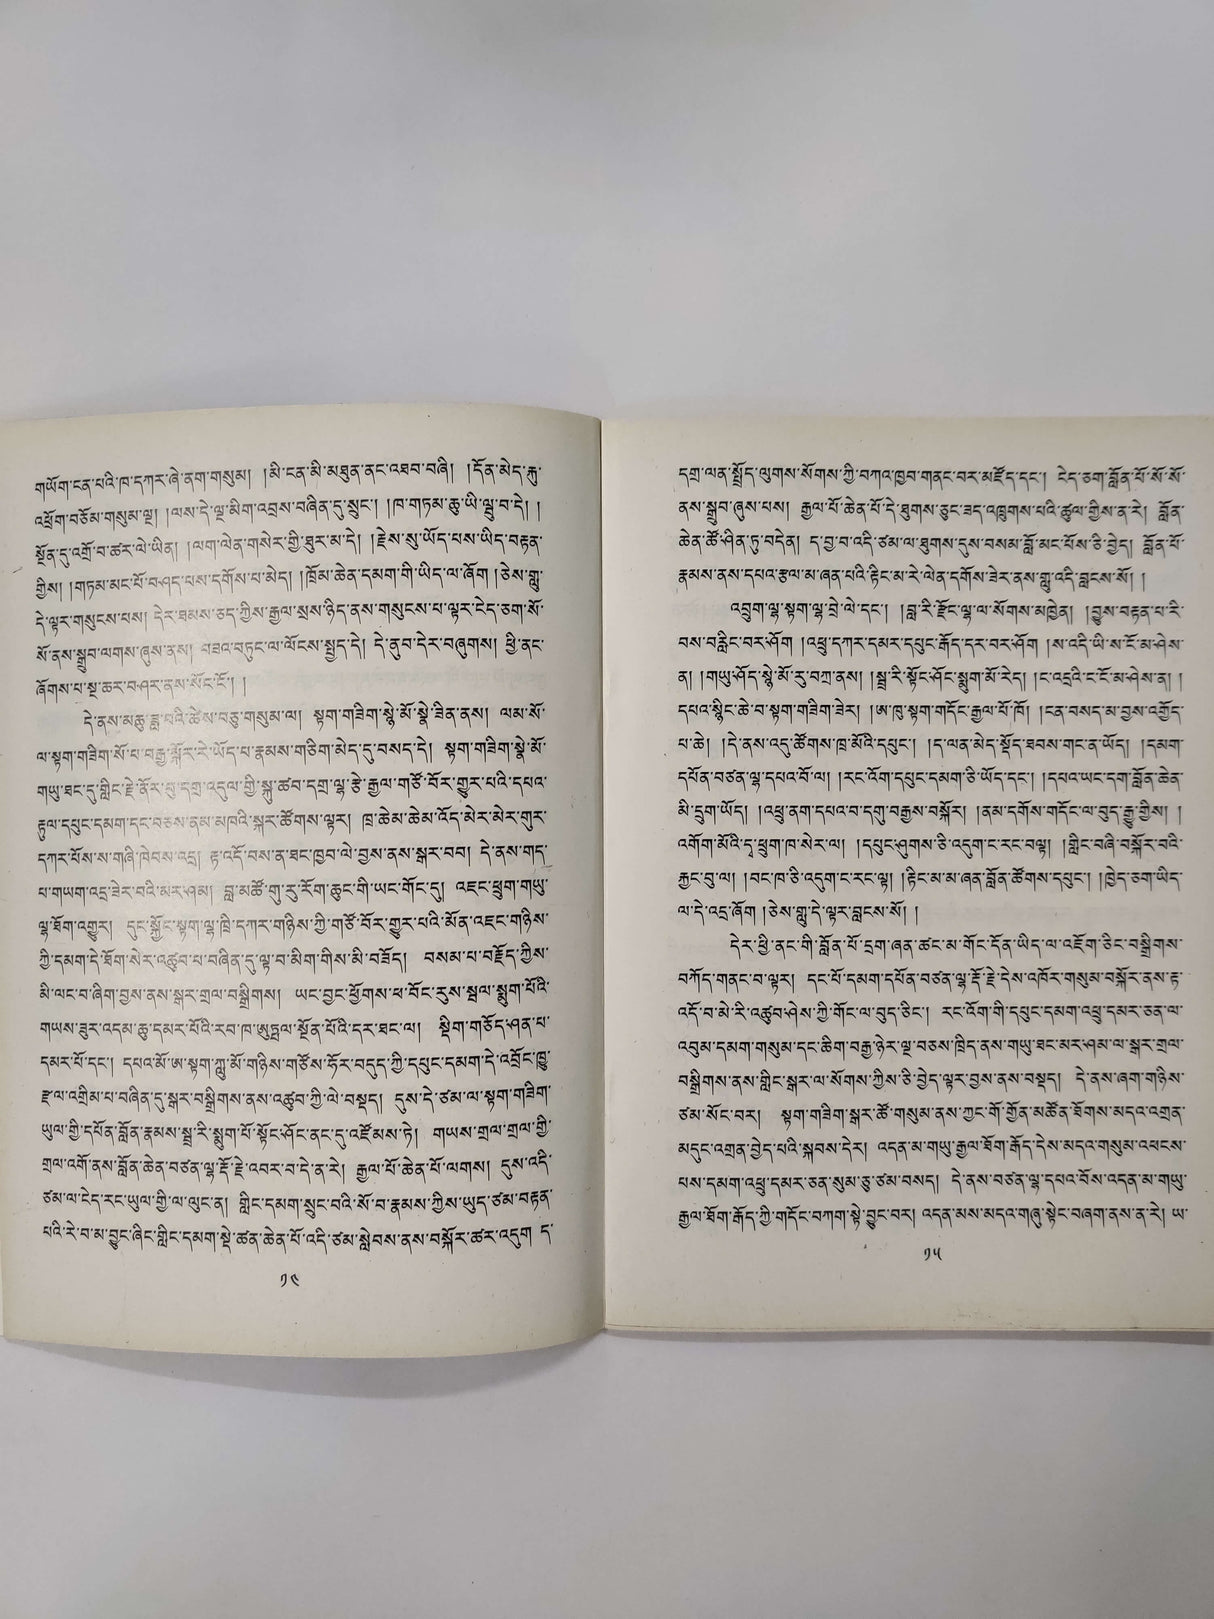 གཡོག་ངན་པའི་ཁ་དཀར་ཞེ་ནག་གསུམ། །མི་ངན་མི་མཐུན་ནང་འཐབ་བཞི། །དོན་མེད་རྐུ་
འཕྲོག་བཅོམ་གསུམ་ལྔ། །ལས་དེ་ལྔ་མིག་འབྲས་བཞིན་དུ་སྲུང་། །ཁ་གཏམ་ཆུ་ཡི་ལྦུ་བ་དེ། །
སྔོན་དུ་འགྲོ་བ་ཚར་ལེ་ཡིན། །ལག་ལེན་གསེར་གྱི་ཐུར་མ་དེ། །རྗེས་སུ་ཡོད་པས་ཡིད་བརྟན་
གྱིས། །གཏམ་མང་པོ་བཤད་པས་དགོས་པ་མེད། །ཁྲོམ་ཆེན་དམག་གི་ཡིད་ལ་ཞོག །ཅེས་གླུ་
དེ་ལྟར་གསུངས་པས། དེར་ཐམས་ཅད་ཀྱིས་རྒྱལ་སྲས་ཉིད་ནས་གསུངས་པ་ལྟར་ངེད་ཅག་སོ་
སོ་ནས་སྒྲུབ་ལགས་ཞུས་ནས། བཟའ་བཏུང་ལ་ལོངས་སྤྱད་དེ། དེ་ནུབ་དེར་བཞུགས། ཕྱི་ནང་
ཞོགས་པ་སྔ་ཆར་བཤར་ནས་སོང་ངོ་། །
དེ་ནས་མཆུ་ཟླ་བའི་ཚེས་བཅུ་གསུམ་ལ། སྟག་གཟིག་སྣེ་མོ་སྣེ་ཟིན་ནས། ལམ་སོ་
ལ་སྟག་གཟིག་སོ་པ་བརྒྱ་སྐོར་རེ་ཡོད་པ་རྣམས་གཅིག་མེད་དུ་བསད་དེ། སྟག་གཟིག་སྣེ་མོ་
གཡུ་ཐང་དུ་གླིང་རྗེ་ནོར་བུ་དགྲ་འདུལ་གྱི་སྐུ་ཚབ་དགྲ་ལྷ་རྩེ་རྒྱལ་གཙོ་བོར་གྱུར་པའི་དཔའ་
རྟུལ་དཔུང་དམག་དང་བཅས་ནམ་མཁའི་སྐར་ཚོགས་ལྟར། ཁྲ་ཆེམ་ཆེམ་འོད་མེར་མེར་གུར་
དཀར་པོས་ས་གཞི་ཁེབས་འདྲ། རྟ་འདོ་བས་ན་ཐང་ཁྱབ་ལེ་བྱས་ནས་སྒར་བབ། དེ་ནས་གད་
པ་གཡག་འདྲ་ཟེར་བའི་མར་ཤམ། བླ་མཚོ་གུ་རུ་རོག་ཆུང་གི་ཡང་གོང་དུ། འཇང་ཕྲུག་གཡུ་
ལྷ་ཐོག་འགྱུར། དུང་སྐྱོང་སྟག་ལྷ་ཁྲི་དཀར་གཉིས་ཀྱི་གཙོ་བོར་གྱུར་པའི་མོན་འཇང་གཉིས་
ཀྱི་དམག་དེ་ཐོག་སེར་འཚུབ་པ་བཞིན་དུ་ལྟ་བ་མིག་གིས་མི་བཟོད། བསམ་པ་བརྗོད་ཀྱིས་
མི་ལང་བ་ཞིག་བྱས་ནས་སྒར་གྲལ་བསྒྲིགས། ཡང་བྱང་ཕྱོགས་ཕ་བོང་རུས་སྦལ་སྨུག་པོའི་
གཡས་ཟུར་འདམ་ཆུ་དམར་པོའི་རབ་ཁ་ཨུཏྤལ་སྔོན་པོའི་དར་ཐང་ལ། སྡིག་གཅོད་ཤན་པ་
དམར་པོ་དང་། དཔའ་མོ་ཨ་སྟག་ཀླུ་མོ་གཉིས་གཙོས་ཧོར་བདུད་ཀྱི་དཔུང་དམག་དེ་འབྲོང་ཁྱུ་
རྫ་ལ་འགྲིམ་པ་བཞིན་དུ་སྒར་བསྒྲིགས་ནས་འཚུབ་ཀྱི་ལེ་བསྡད། དུས་དེ་ཙམ་ལ་སྟག་གཟིག་
ཡུལ་གྱི་དཔོན་བློན་རྣམས་སྦྲ་རི་སྨུག་པོ་སྟོང་ཤོང་ནང་དུ་འཛོམས་ཏེ། གཡས་གྲལ་གྲལ་གྱི་
གྲལ་འགོ་ནས་བློན་ཆེན་བཙན་ལྷ་རྡོ་རྗེ་འབར་བ་དེ་ན་རེ། རྒྱལ་པོ་ཆེན་པོ་ལགས། དུས་འདི་
ཙམ་ལ་ངེད་རང་ཡུལ་གྱི་ལ་ལུང་ན། གླིང་དམག་སྲུང་བའི་སོ་བ་རྣམས་ཀྱིས་ཡུད་ཙམ་བརྟན་
པའི་རེ་བ་མ་བྱུང་ཞིང་གླིང་དམག་སྡེ་ཚན་ཆེན་པོ་འདི་ཙམ་སླེབས་ནས་བསྐོར་ཚར་འདུག ད་
༡༤
དགྲ་ལན་སྤྲོད་ལུགས་སོགས་ཀྱི་བཀའ་ཁྱབ་གནང་བར་མཛོད་དང་། ངེད་ཅག་བློན་པོ་སོ་སོ་
ནས་སྒྲུབ་ཞུས་པས། རྒྱལ་པོ་ཆེན་པོ་དེ་ཐུགས་ཅུང་ཟད་འཁྲུགས་པའི་ཚུལ་གྱིས་ན་རེ། བློན་
ཆེན་ཚོ་ཤིན་ཏུ་བདེན། ད་བྱ་བ་འདི་ཙམ་ལ་ཐུགས་དུས་བསམ་བློ་མང་པོས་ཅི་བྱེད། བློན་པོ་
རྣམས་ནས་དཔའ་རྩལ་མ་ཞན་པའི་རྟིང་མ་རེ་ལེན་དགོས་ཟེར་ནས་གླུ་འདི་བླངས་སོ། །
འབྲུག་ལྷ་སྟག་ལྷ་བྲེ་ལེ་དང་། །བླ་རི་རྫོང་ལྷ་ལ་སོགས་མཁྱེན། །བྱུས་བརྟན་པ་རི་
བས་བརླིང་བར་ཤོག །འཕྲུ་དཀར་དམར་དཔུང་རྒོད་དར་བར་ཤོག །ས་འདི་ཡི་ས་ངོ་མ་ཤེས་
ན། །གཡུ་ཤོད་སྣེ་མོ་རུ་བཀྲ་ནས། །སྦྲ་རི་སྟོང་ཤོང་སྨུག་མོ་རེད། །ང་འདྲའི་ང་ངོ་མ་ཤེས་ན། །
དཔའ་སྙིང་ཆེ་བ་སྟག་གཟིག་ཟེར། །ཨ་ཁུ་སྟག་གདོང་རྒྱལ་པོ་ཁོ། །ངན་བསད་མ་བྱས་འགྱོད་
པ་ཆེ། །དེ་ནས་འདུ་ཚོགས་ཁྲ་མོའི་དཔུང་། །ད་ལན་མེད་སྡོད་ཐབས་གང་ན་ཡོད། །དམག་
དཔོན་བཙན་ལྷ་དཔའ་བོ་ལ། །རང་འོག་དཔུང་དམག་ཅི་ཡོད་དང་། །དཔའ་ཡང་དག་བློན་ཆེན་
མི་དྲུག་ཡོད། །འཕྲུ་ནག་དཔའ་བ་དགུ་བརྒྱས་བསྐོར། །ནམ་དགོས་གདོང་ལ་བུད་རྒྱུ་གྱིས། །
འགོག་མོའི་དྭ་ཕྲུག་ཁ་སེར་ལ། །དཔུང་ཤུགས་ཅི་འདུག་ང་རང་བལྟ། །གླིང་བཞི་བསྐོར་བའི་
རྐྱང་བུ་ལ། །བང་ཁ་ཅི་འདུག་ང་རང་ལྟ། །རྟིང་མ་མ་ཞན་བློན་ཚོགས་དཔུང་། །ཁྱེད་ཅག་ཡིད་
ལ་དེ་འདྲ་ཞོག །ཅེས་གླུ་དེ་ལྟར་བླངས་སོ། །
དེར་ཕྱི་ནང་གི་བློན་པོ་དྲག་ཞན་ཚང་མ་གོང་དོན་ཡིད་ལ་འཇོག་ཅིང་བསྒྲིགས་
བཀོད་གནང་བ་ལྟར། དང་པོ་དམག་དཔོན་བཙན་ལྷ་རྡོ་རྗེ་དེས་འཁོར་གསུམ་བསྐོར་ནས་རྟ་
འདོ་བ་མེ་རི་འཚུབ་ཤེས་ཀྱི་གོང་ལ་བུད་ཅིང་། རང་འོག་གི་དཔུང་དམག་འཕྲུ་དམར་ཅན་ལ་
འབུམ་དམག་གསུམ་དང་ཆིག་བརྒྱ་ཉེར་ལྔ་བཅས་ཁྲིད་ནས་གཡུ་ཐང་མར་ཤམ་ལ་སྒར་གྲལ་
བསྒྲིགས་ནས་གླིང་སྒར་ལ་སོགས་ཀྱིས་ཅི་བྱེད་ལྟར་བྱས་ནས་བསྡད། དེ་ནས་ཞག་གཉིས་
ཙམ་སོང་བར། སྟག་གཟིག་སྒར་ཚོ་གསུམ་ནས་ཀྱང་གོ་གྱོན་མཚོན་ཐོགས་མདའ་འགྲན་
མདུང་འགྲན་བྱེད་པའི་སྐབས་དེར། འདན་མ་གཡུ་རྒྱལ་ཐོག་རྒོད་དེས་མདའ་གསུམ་འཕངས་
པས་དམག་འཕྲུ་དམར་ཅན་སུམ་ཅུ་ཙམ་བསད། དེ་ནས་བཙན་ལྷ་དཔའ་བོས་འདན་མ་གཡུ་
རྒྱལ་ཐོག་རྒོད་ཀྱི་གདོང་བཀག་སྟེ་བྱུང་བར། འདན་མས་མདའ་གཞུ་སྟེང་བཞག་ནས་ན་རེ། ཡ་
༡༥